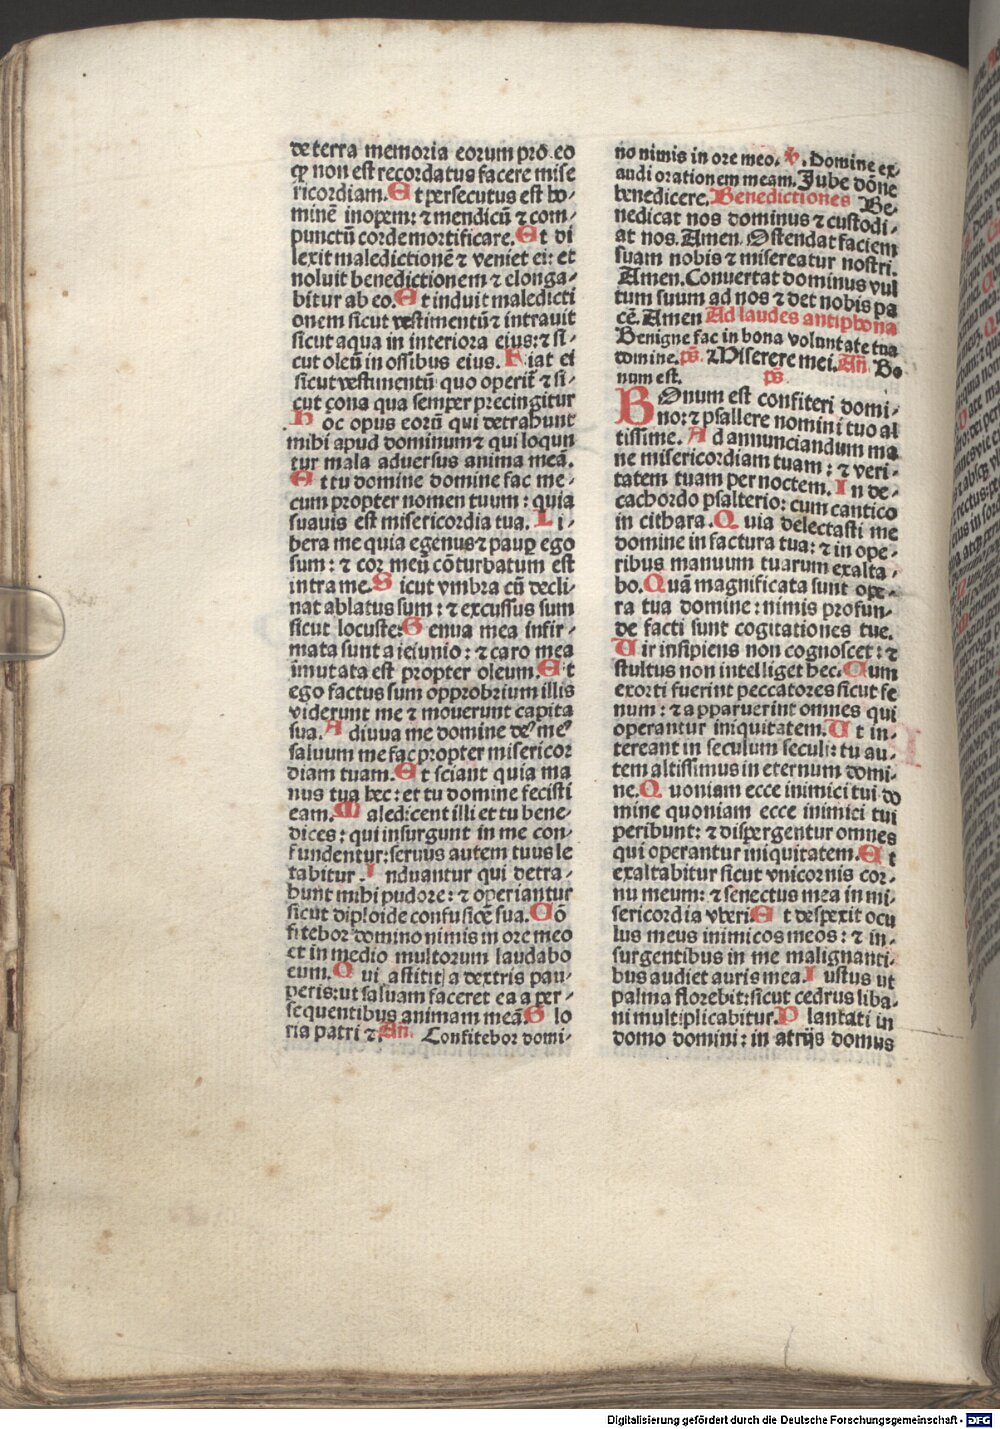 de terra memoria eorum prō.eo
ꝙ non est recordatus facere mise
ricordiam. Et persecutus est ho⸗
minē inopem: ⁊ mendicū ⁊ com⸗
punctū corde mortificare. Et di
lexit maledictionē ⁊ veniet ei: et
noluit benedictionem ⁊ elonga⸗
bitur ab eo. Et induit maledicti
onem sicut vestimentū ⁊ intrauit
sicut aqua in interiora eius: ⁊ si⸗
cut oleū in ossibus eius. Fiat ei
sicut vestimentū quo operit̄ ⁊ si⸗
cut çona qua semper precingitur
Hoc opus eorū qui detrahunt
mihi apud dominum ⁊ qui loqun
tur mala aduersus anima meā.
Et tu domine domine fac me⸗
cum propter nomen tuum: quia
suauis est misericordia tua. Li⸗
bera me quia egenus ⁊ paup̄ ego
sum: ⁊ cor meū cōturbatum est
intra me. Sicut vmbra cū decli⸗
nat ablatus sum: ⁊ excussus sum
sicut locuste: Genua mea infir⸗
mata sunt a ieiunio: ⁊ caro mea
īmutata est propter oleum. Et
ego factus sum opprobrium illis
viderunt me ⁊ mouerunt capita
sua. Adiuua me domine deꝰ meꝰ
saluum me fac propter misericor
diam tuam. Et sciant quia ma
nus tua hec: et tu domine fecisti
eam. Maledicent illi et tu bene⸗
dices: qui insurgunt in me con⸗
fundentur: seruus autem tuus le
tabitur. Induantur qui detra⸗
hunt mihi pudore: ⁊ operiantur
sicut diploide confusicē sua. Cō
fitebor domino nimis in ore meo
et in medio multorum laudabo
eum. Qui astitit a dextris pau⸗
peris: ut saluam faceret ea a per⸗
sequentibus animam meā. Glo
ria patri ⁊ Añ. Confitebor domi⸗
no nimis in ore meo. ꝟ. Domine ex⸗
audi orationem meam. Jube dōne
benedicere. Benedictiones Be⸗
nedicat nos dominus ⁊ custodi⸗
at nos. Amen. Ostendat faciem
suam nobis ⁊ misereatur nostri.
Amen. Conuertat dominus vul
tum suum ad nos ⁊ det nobis pa
cē. Amen Ad laudes antiphona
Benigne fac in bona voluntate tua
domine. p̄s. ⁊ Miserere mei. Añ. Bo
num est. p̄s.
Bonum est confiteri domi⸗
no: ⁊ psallere nomini tuo al
tissime. Ad annunciandum ma
ne misericordiam tuam: ⁊ veri⸗
tatem tuam per noctem. In de⸗
cachordo psalterio: cum cantico
in cithara. Quia delectasti me
domine in factura tua: ⁊ in ope⸗
ribus manuum tuarum exalta⸗
bo. Quā magnificata sunt ope⸗
ra tua domine: nimis profun⸗
de facti sunt cogitationes tue.
Uir insipiens non cognoscet: ⁊
stultus non intelliget hec. Cum
exorti fuerint peccatores sicut fe
num: ⁊ apparuerint omnes qui
operantur iniquitatem. Ut in⸗
tereant in seculum seculi: tu au⸗
tem altissimus in eternum domi⸗
ne. Quoniam ecce inimici tui do
mine quoniam ecce inimici tui
peribunt: ⁊ dispergentur omnes
qui operantur iniquitatem. Et
exaltabitur sicut vnicornis cor⸗
nu meum: ⁊ senectus mea in mi⸗
sericordia vberi Et despexit ocu
lus meus inimicos meos: ⁊ in⸗
surgentibus in me malignanti⸗
bus audiet auris mea. Iustus ut
palma florebit: sicut cedrus liba⸗
ni multiplicabitur. Plantati in
domo domini: in atrijs domus
Digitalisierung gefördert durch die Deutsche Forschungsgemeinschaft - DFG